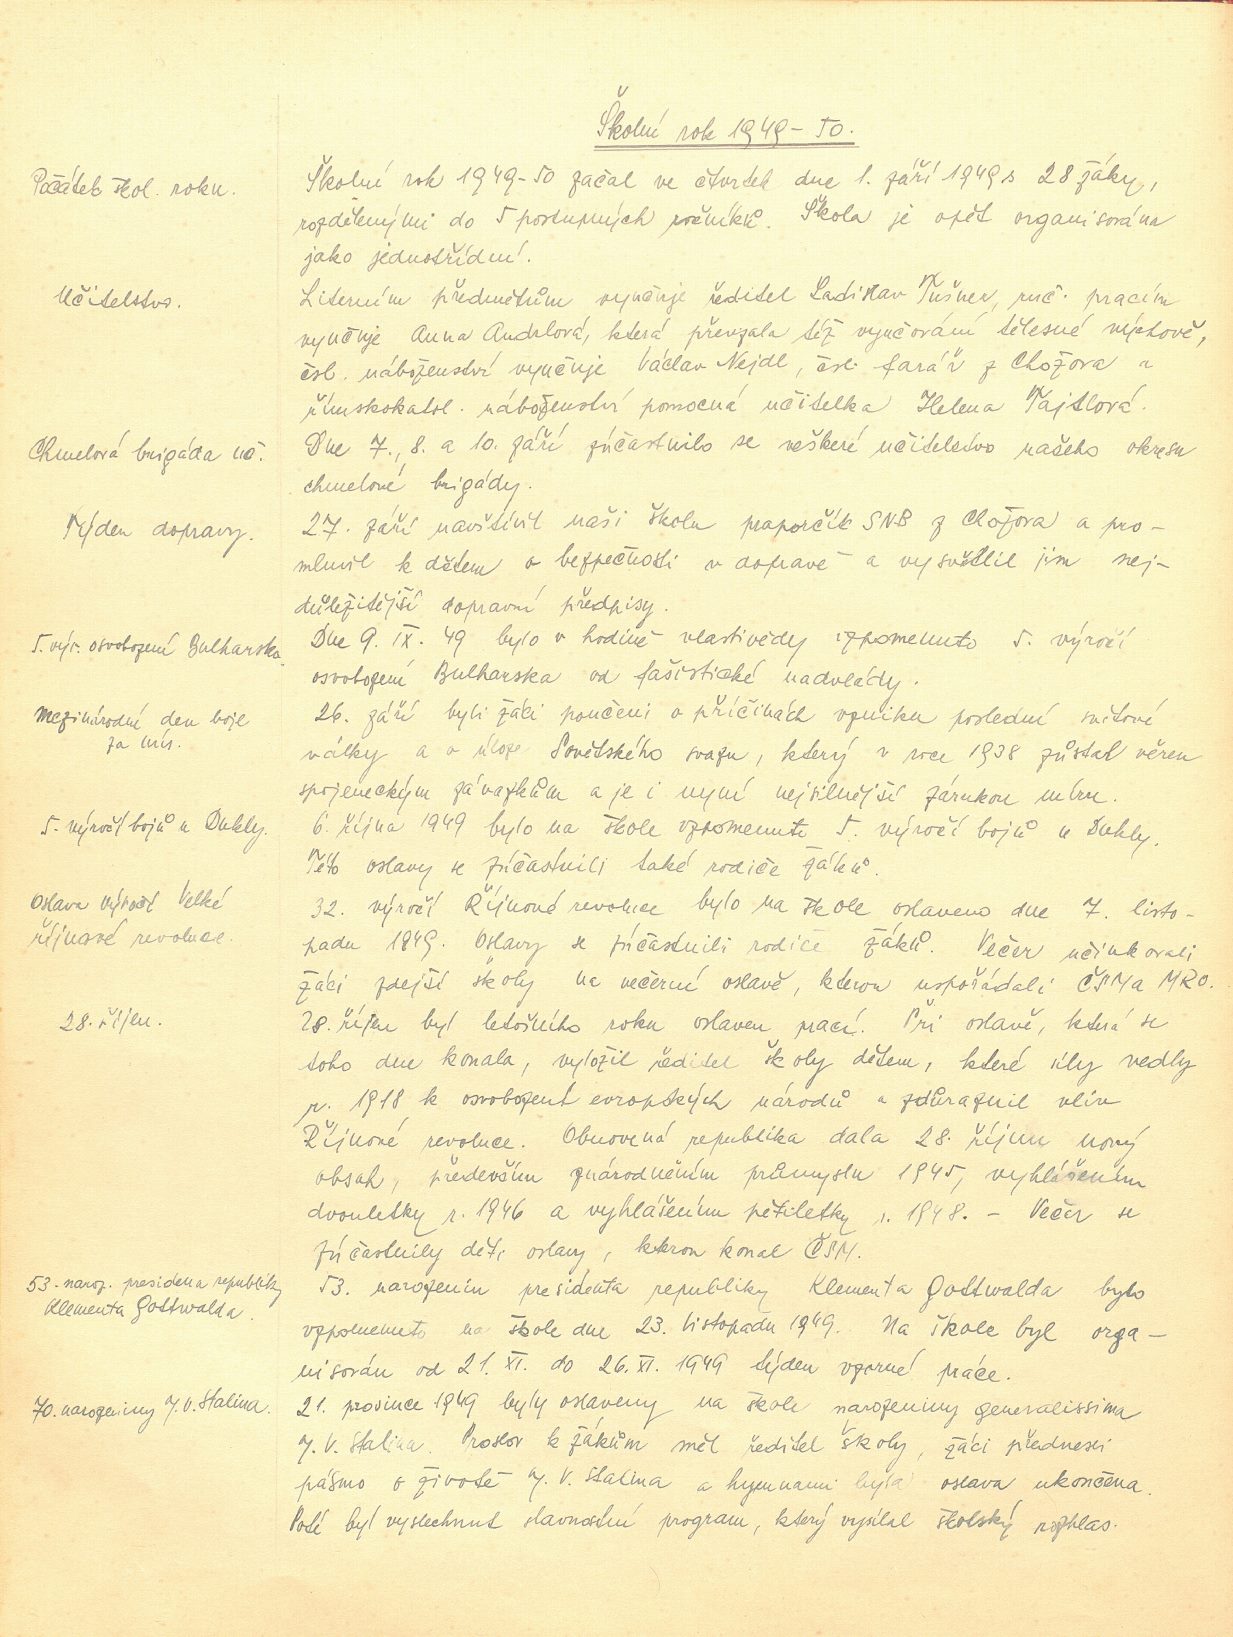 Školní rok 1949-50.
Počátek škol. roku.
Školní rok 1949-50 začal ve čtvrtek dne 1. září 1949 s 28 žáky,
rozdělenými do 5 postupných ročníků. Škola je opět organisována
jako jednotřídní.
Učitelstvo.
Literním předmětům vyučuje ředitel Ladislav Tušner, ruč. pracím
vyučuje Anna Andrlová, která převzala též vyučování tělesné výchově,
čsl. náboženství vyučuje Václav Nejdl, čsl. farář z Chožova a
římskokatol. náboženství pomocná učitelka Helena Tajtlová.
Chmelová brigáda uč.
Dne 7., 8. a 10. září zúčastnilo se veškeré učitelstvo našeho okresu
chmelové brigády.
Týden dopravy.
27. září navštívil naši školu praporčík SNB z Chožova a pro-
mluvil k dětem o bezpečnosti v dopravě a vysvětlil jim nej-
důležitější dopravní předpisy.
5. výr. osvobození Bulharska.
Dne 9. IX. 49 bylo v hodině vlastivědy vzpomenuto 5. výročí
osvobození Bulharska od fašistické nadvlády.
Mezinárodní den boje
za mír.
26. září byli žáci poučeni o příčinách vzniku poslední světové
války a o úloze Sovětského svazu, který v roce 1938 zůstal věren
spojeneckým závazkům a je i nyní nejsilnější zárukou míru.
5. výročí bojů u Dukly.
6. října 1949 bylo na škole vzpomenuto 5. výročí bojů u Dukly.
Této oslavy se zúčastnili také rodiče žáků.
Oslava výročí Velké
říjnové revoluce.
32. výročí Říjnové revoluce bylo na škole oslaveno dne 7. listo-
padu 1949. Oslavy se zúčastnili rodiče žáků. Večer účinkovali
žáci zdejší školy na večerní oslavě, kterou uspořádali ČSM a MRO.
28. říjen.
28. říjen byl letošního roku oslaven prací. Při oslavě, která se
toho dne konala, vyložil ředitel školy dětem, které síly vedly
r. 1918 k osvobození evropských národů a zdůraznil vliv
Říjnové revoluce. Obnovená republika dala 28. říjnu nový
obsah, především znárodněním průmyslu 1945, vyhlášením
dvouletky r. 1946 a vyhlášením pětiletky r. 1948. - Večer se
zúčastnily děti oslavy, kterou konal ČSM.
53. naroz. presidena republiky
Klementa Gottwalda.
53. narozenin presidenta republiky Klementa Gottwalda bylo
vzpomenuto na škole dne 23. listopadu 1949. Na škole byl orga-
nisován od 21. XI. do 26. XI. 1949 týden vzorné práce.
70. narozeniny J. V. Stalina.
21. prosince 1949 byly oslaveny na škole narozeniny generalissima
J. V. Stalina. Proslov k žákům měl ředitel školy, žáci přednesli
pásmo o životě J. V. Stalina a hymnami byla oslava ukončena.
Poté byl vyslechnut slavnostní program, který vysílal školský rozhlas.